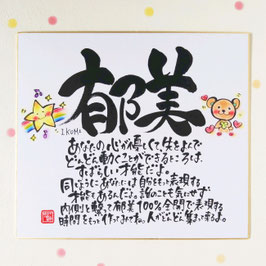 郁美
IKUMI
あなたの心が優しくて先をよんで
どんどん動くことができるところは、
すばらしい才能だよ。
同じようにあなたは自分をもっと表現する
才能もあるんだよ。誰のことも気にせず
内側と繋って郁美100%全開で表現する
時間をもっと作ってまてね。人がどんどん集まって来るよ。